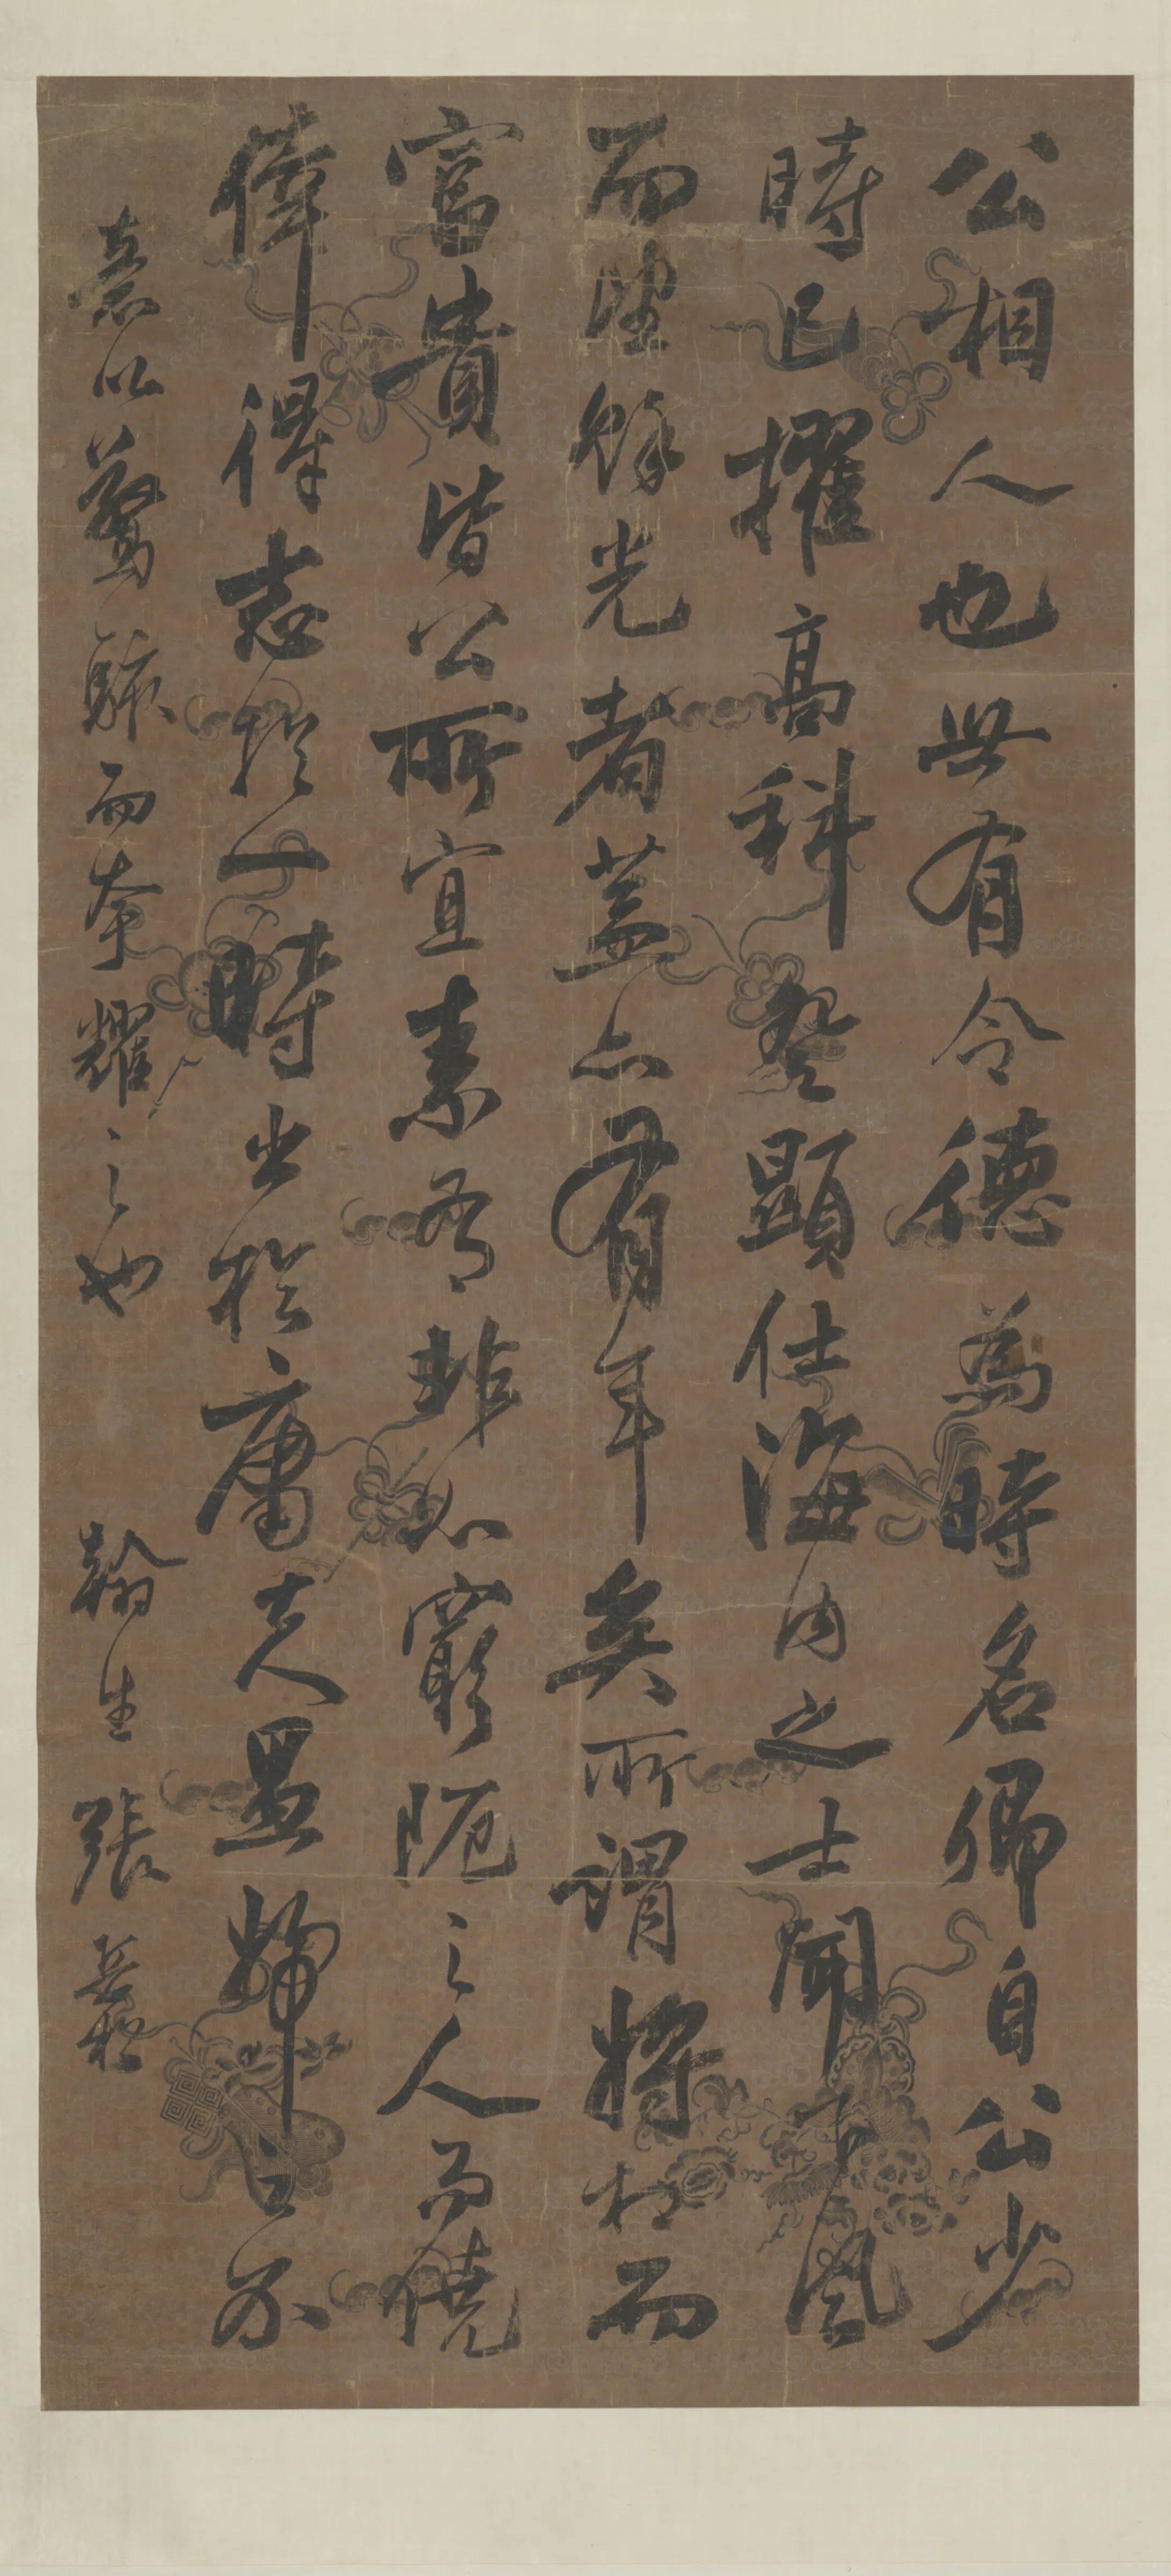 公相人也世有令德為時名卿自公少
時已擢高科登顯仕海內之士聞下風
而望餘光者蓋亦有年矣所謂將相而
富貴皆公所宜素有非如窮阨之人而僥
倖得志於一時出於庸夫愚婦之不
意以驚駭而夸耀之也 翰生張岳崧